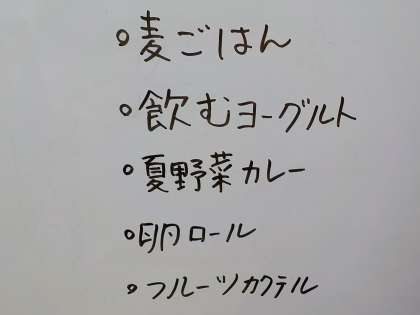 麦ごはん
飲むヨーグルト
夏野菜カレー
卵ロール
フルーツカクテル